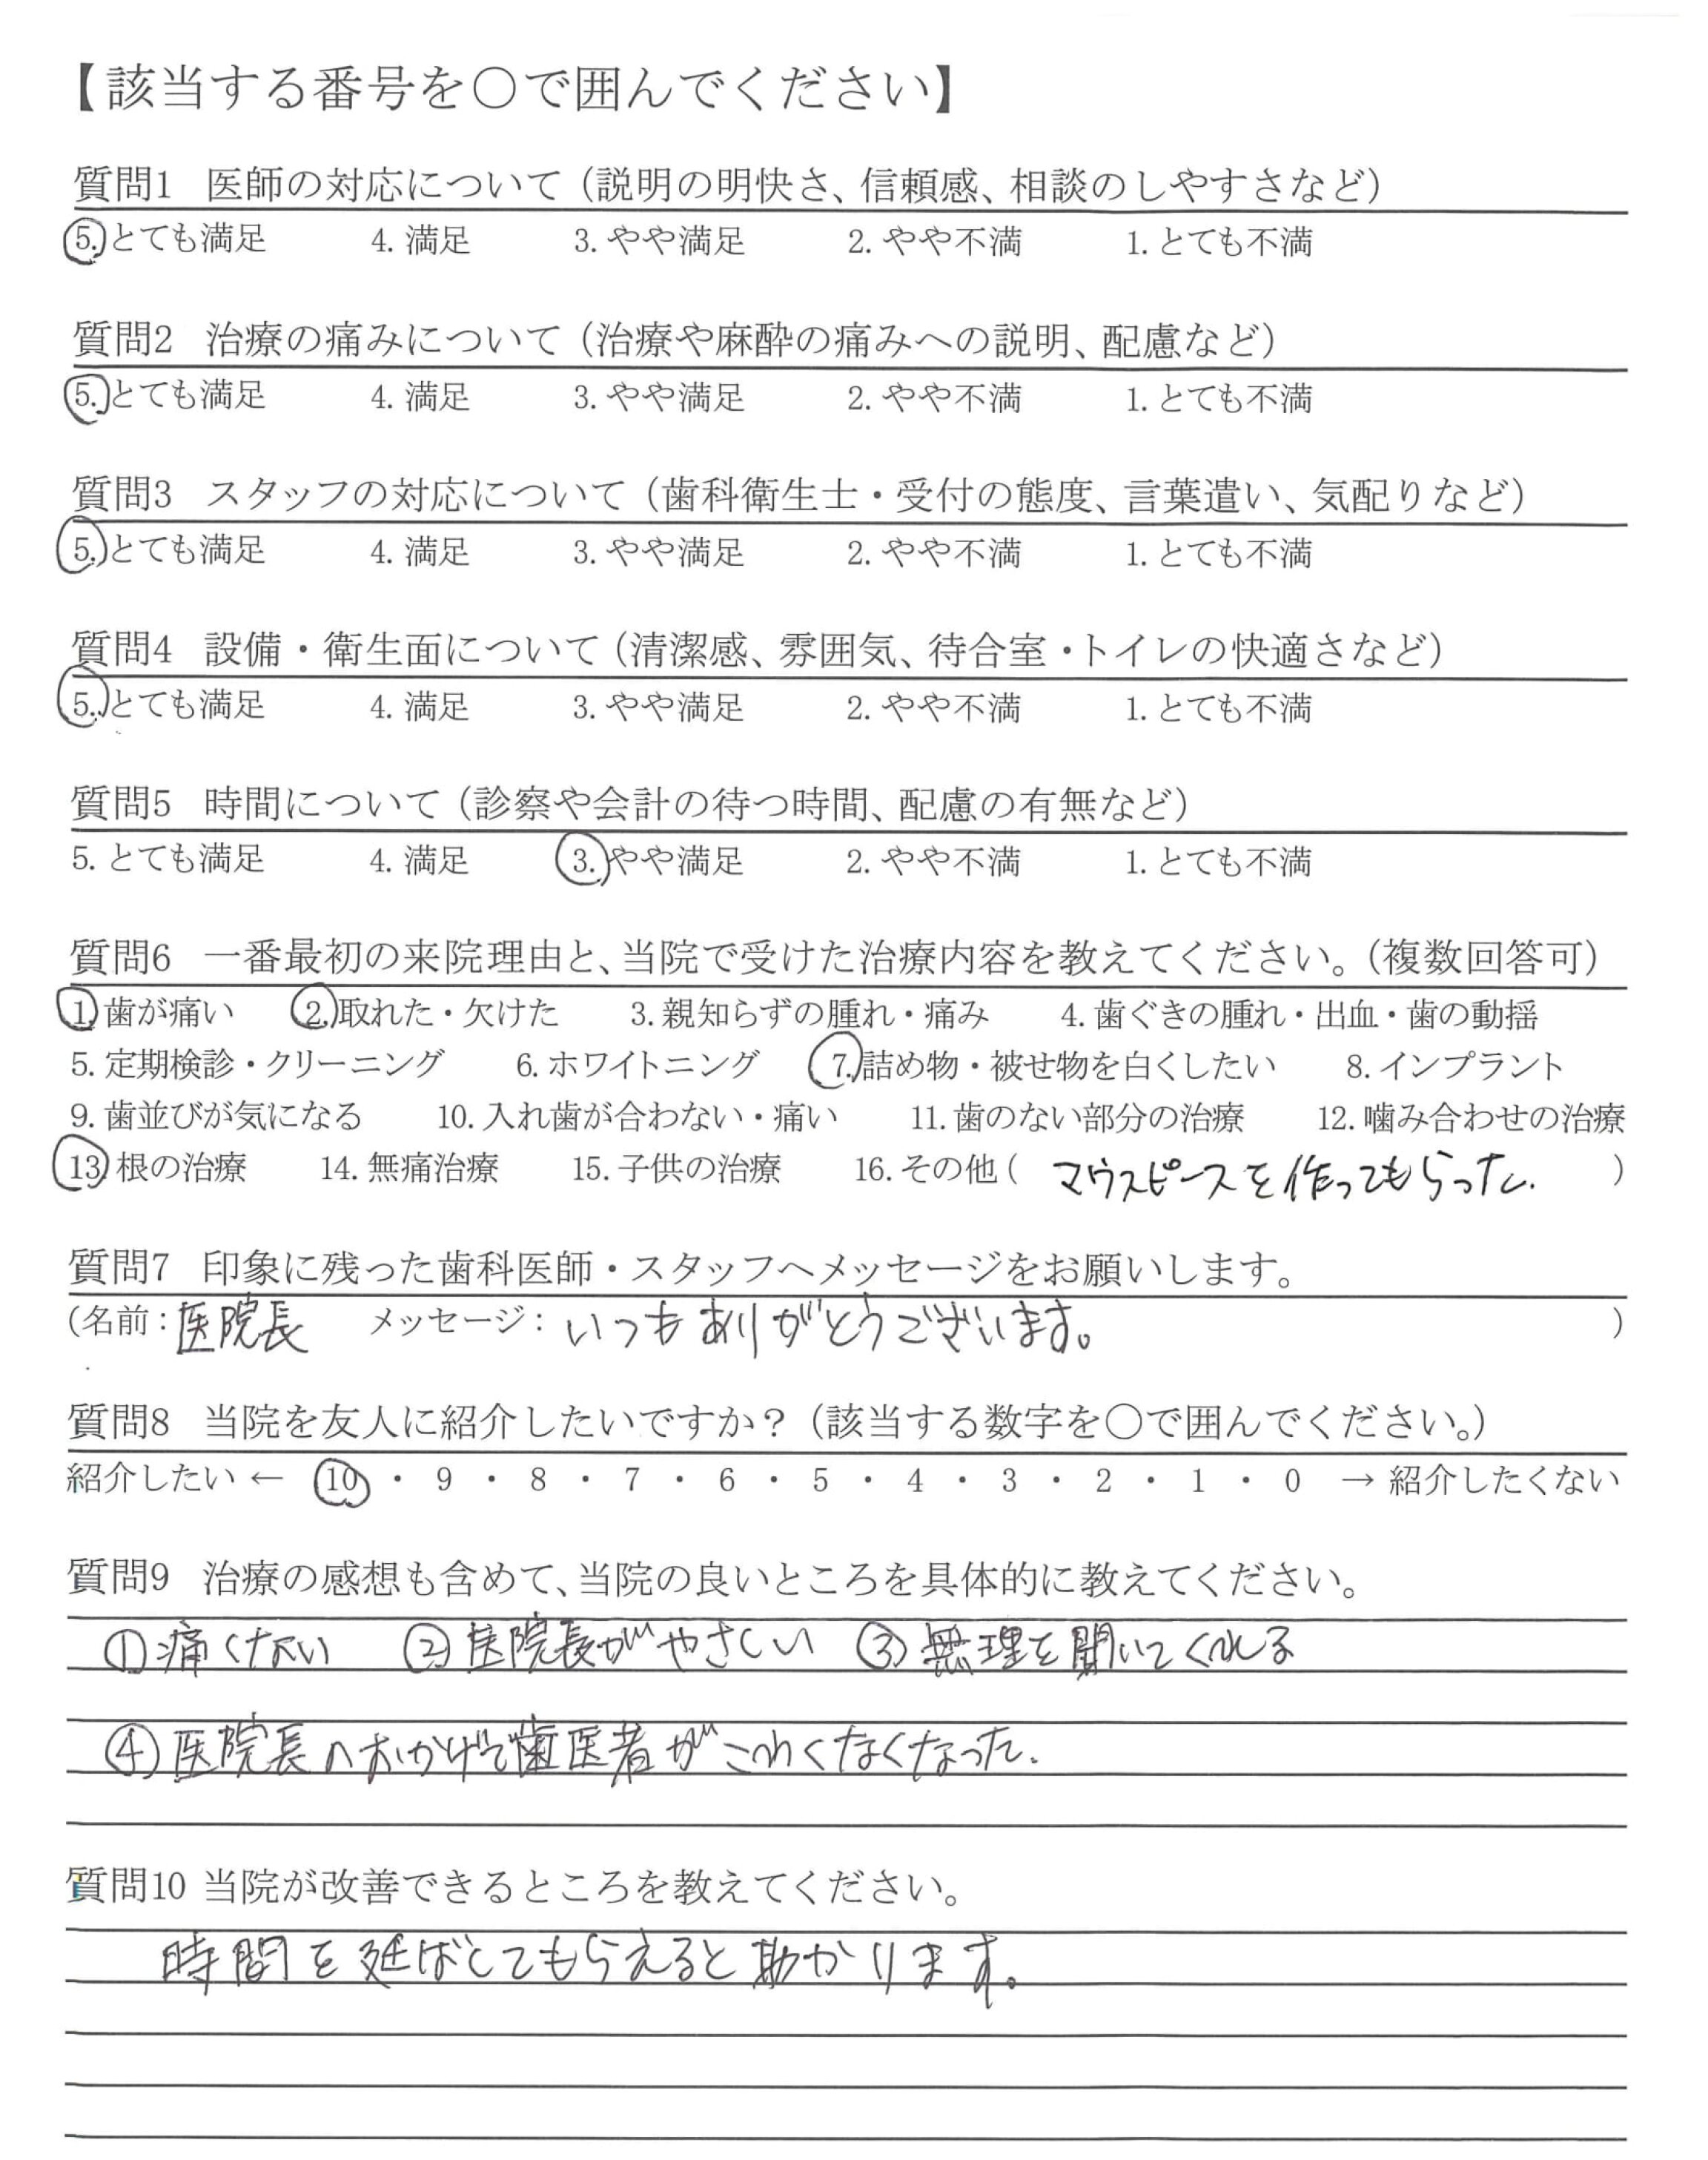 【該当する番号を○で囲んでください】
質問1 医師の対応について（説明の明快さ、信頼感、相談のしやすさなど）
5. とても満足 4. 満足 3. やや満足 2. やや不満 1. とても不満
質問2 治療の痛みについて（治療や麻酔の痛みへの説明、配慮など）
5. とても満足 4. 満足 3. やや満足 2. やや不満 1. とても不満
質問3 スタッフの対応について（歯科衛生士・受付の態度、言葉遣い、気配りなど）
5. とても満足 4. 満足 3. やや満足 2. やや不満 1. とても不満
質問4 設備・衛生面について（清潔感、雰囲気、待合室・トイレの快適さなど）
5. とても満足 4. 満足 3. やや満足 2. やや不満 1. とても不満
質問5 時間について（診察や会計の待つ時間、配慮の有無など）
5. とても満足 4. 満足 3. やや満足 2. やや不満 1. とても不満
質問6 一番最初の来院理由と、当院で受けた治療内容を教えてください。（複数回答可）
1. 歯が痛い 2. 取れた・欠けた 3. 親知らずの腫れ・痛み 4. 歯ぐきの腫れ・出血・歯の動揺
5. 定期検診・クリーニング 6. ホワイトニング 7. 詰め物・被せ物を白くしたい 8. インプラント
9. 歯並びが気になる 10. 入れ歯が合わない・痛い 11. 歯のない部分の治療 12. 噛み合わせの治療
13. 根の治療 14. 無痛治療 15. 子供の治療 16. その他（ マウスピースを作ってもらった. ）
質問7 印象に残った歯科医師・スタッフへメッセージをお願いします。
（名前：医院長 メッセージ：いつもありがとうございます。 ）
質問8 当院を友人に紹介したいですか？（該当する数字を○で囲んでください。）
紹介したい ← 10 ・ 9 ・ 8 ・ 7 ・ 6 ・ 5 ・ 4 ・ 3 ・ 2 ・ 1 ・ 0 → 紹介したくない
質問9 治療の感想も含めて、当院の良いところを具体的に教えてください。
①痛くない ②医院長がやさしい ③無理を聞いてくれる
④医院長のおかげで歯医者がこわくなくなった.
質問10 当院が改善できるところを教えてください。
時間を延ばしてもらえると助かります。